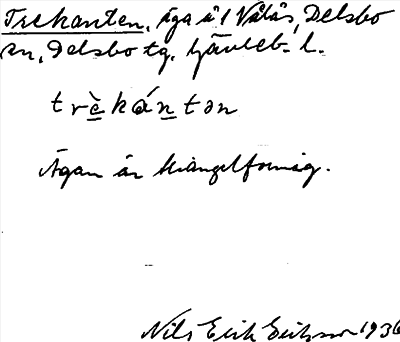 Trekanten, äga å 1 Valås, Delsbo
sn, Delsbo tg. Gävleb. l.
trèkánton
Ägan är triangelformig.
Nils Erik Erikson 1936